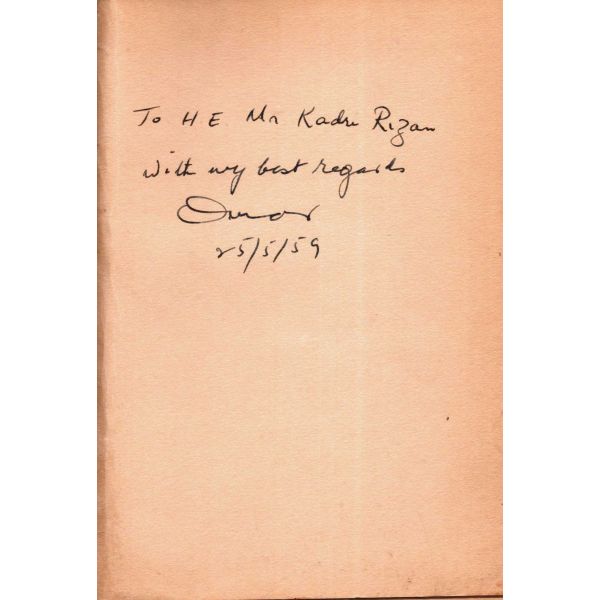 To H E. Mr Kadri Rizan
with my best regards
25/5/59